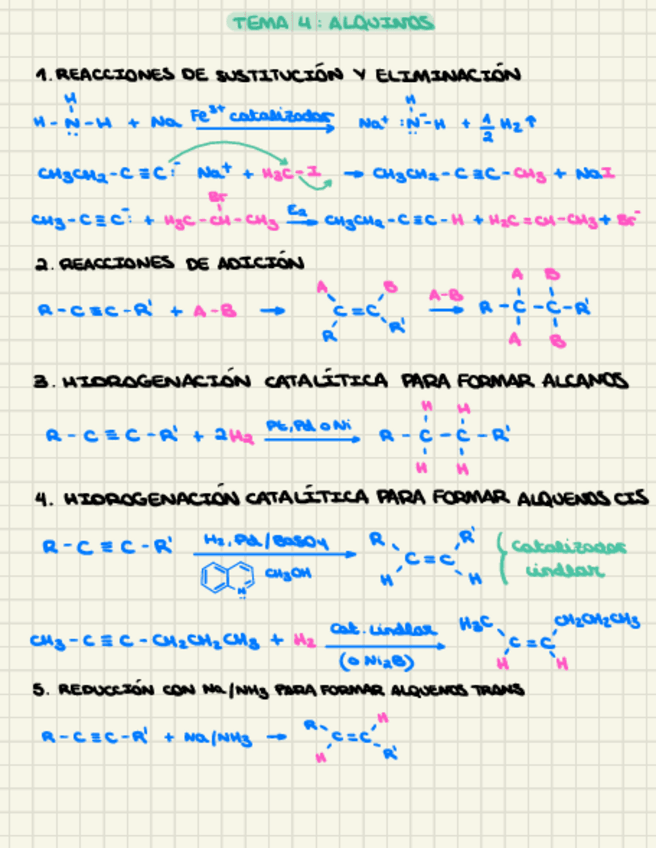 TEMA 4: ALQUINOS
1. REACCIONES DE SUSTITUCIÓN Y ELIMINACIÓN
H H
H-N-H + Na Fe³⁺ catalizador Na⁺ :N̄-H + 1/2 H₂↑
CH₃CH₂-C≡C:⁻ Na⁺ + H₃C-I → CH₃CH₂-C≡C-CH₃ + NaI
Br
CH₃-C≡C:⁻ + H₃C-CH-CH₃ E₂ → CH₃CH₂-C≡C-H + H₂C=CH-CH₃ + Br⁻
2. REACCIONES DE ADICIÓN
A B A B
R-C≡C-R' + A-B → C=C A-B → R-C-C-R'
R R' A B
3. HIDROGENACIÓN CATALÍTICA PARA FORMAR ALCANOS
H H
R-C≡C-R' + 2H₂ Pt, Pd o Ni → R-C-C-R'
H H
4. HIDROGENACIÓN CATALÍTICA PARA FORMAR ALQUENOS CIS
R-C≡C-R' H₂, Pd/BaSO₄ R R' Catalizador
N: CH₃OH C=C Lindlar
H H
CH₃-C≡C-CH₂CH₂CH₃ + H₂ Cat. Lindlar H₃C CH₂CH₂CH₃
(o Ni₂B) C=C
H H
5. REDUCCIÓN CON Na/NH₃ PARA FORMAR ALQUENOS TRANS
R H
R-C≡C-R' + Na/NH₃ → C=C
H R'